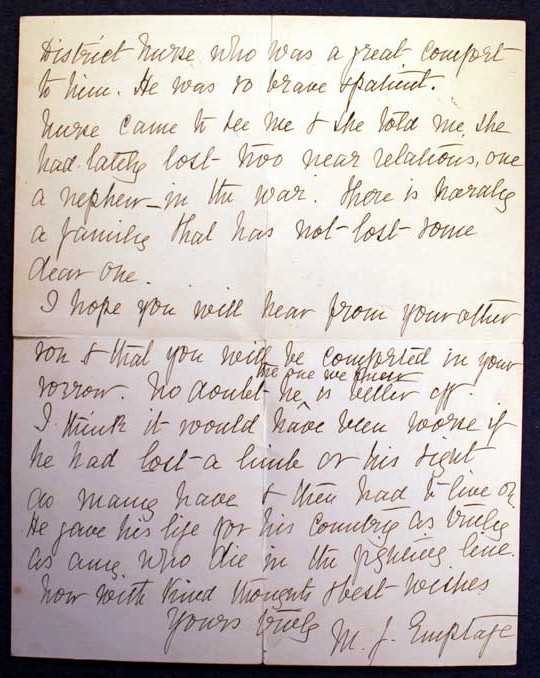 District Nurse who was a great comfort
to him. He was so brave & patient.
Nurse came to see me & she told me, she
had lately lost two near relations, one
a nephew in the war. There is hardly
a family that has not lost some
dear one.
I hope you will hear from your other
son & that you will be comforted in your
the one we knew
sorrow. No doubt he is better off.
I think it would have been worse if
he had lost a limb or his sight
as many have & then had to live on
He gave his life for his Country as truly
as any who die in the fighting line.
Now with kind thoughts & best wishes
Yours truly M. J. Emptage